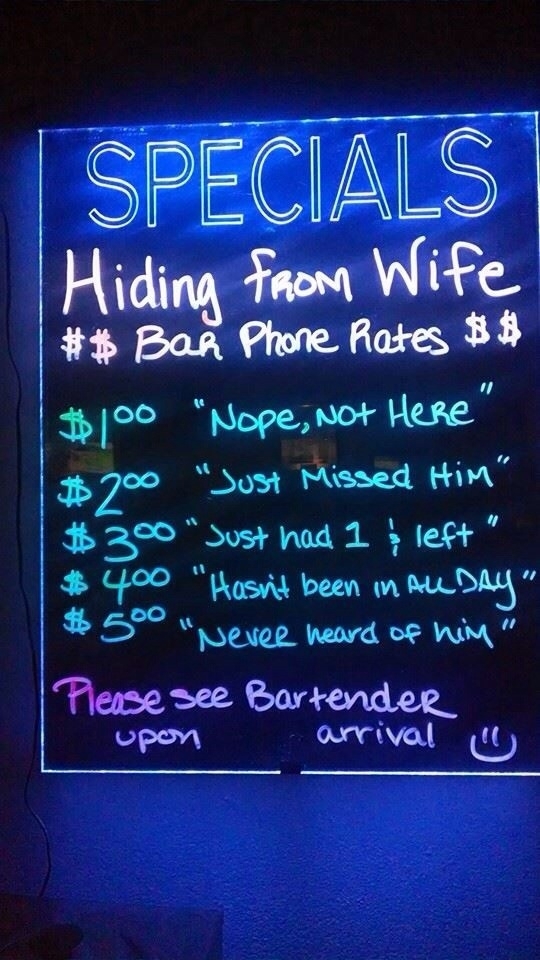 SPECIALS
Hiding from Wife
$$ Bar Phone Rates $$
$1.00 "Nope, Not Here"
$2.00 "Just Missed Him"
$3.00 "Just had 1 & left"
$4.00 "Hasn't been in ALL DAY"
$5.00 "Never heard of him"
Please see Bartender
upon arrival